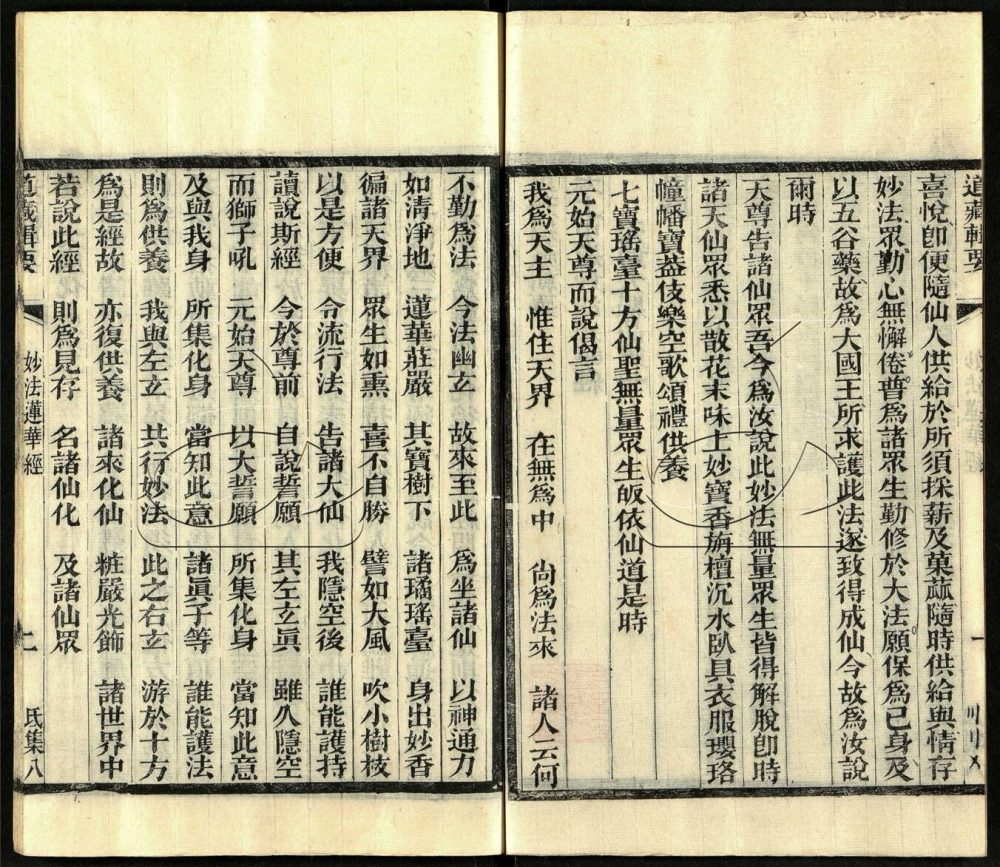 道藏輯要
喜悅卽便隨仙人供給於所須採薪及菓蓏隨時供給與情存
妙法眾勤心無懈倦普為諸眾生勤修於大法願保為己身及
以五谷藥故為大國王所求護此法遂致得成仙今故為汝說
爾時
天尊告諸仙眾吾今為汝說此妙法無量眾生皆得解脫卽時
諸天仙眾悉以散花末味上妙寶香旃檀沉水臥具衣服瓔珞
幢幡寶葢伎樂空歌頌禮供養
七寶瑤臺十方仙聖無量眾生皈依仙道是時
元始天尊而說偈言
我為天主 惟住天界 在無為中 尙為法來 諸人云何
不勤為法 今法幽玄 故來至此 為坐諸仙 以神通力
如清淨地 蓮華莊嚴 其寶樹下 諸璚瑤臺 身出妙香
徧諸天界 眾生如熏 喜不自勝 譬如大風 吹小樹枝
以是方便 令流行法 告諸大仙 我隱空後 誰能護持
讀說斯經 今於尊前 自說誓願 其左玄眞 雖久隱空
而獅子吼 元始天尊 以大誓願 所集化身 當知此意
及與我身 所集化身 當知此意 諸眞子等 誰能護法
則為供養 我與左玄 共行妙法 此之右玄 游於十方
為是經故 亦復供養 諸來化仙 粧嚴光飾 諸世界中
若說此經 則為見存 名諸仙化 及諸仙眾
道藏輯要 妙法蓮華經 二 氐集八